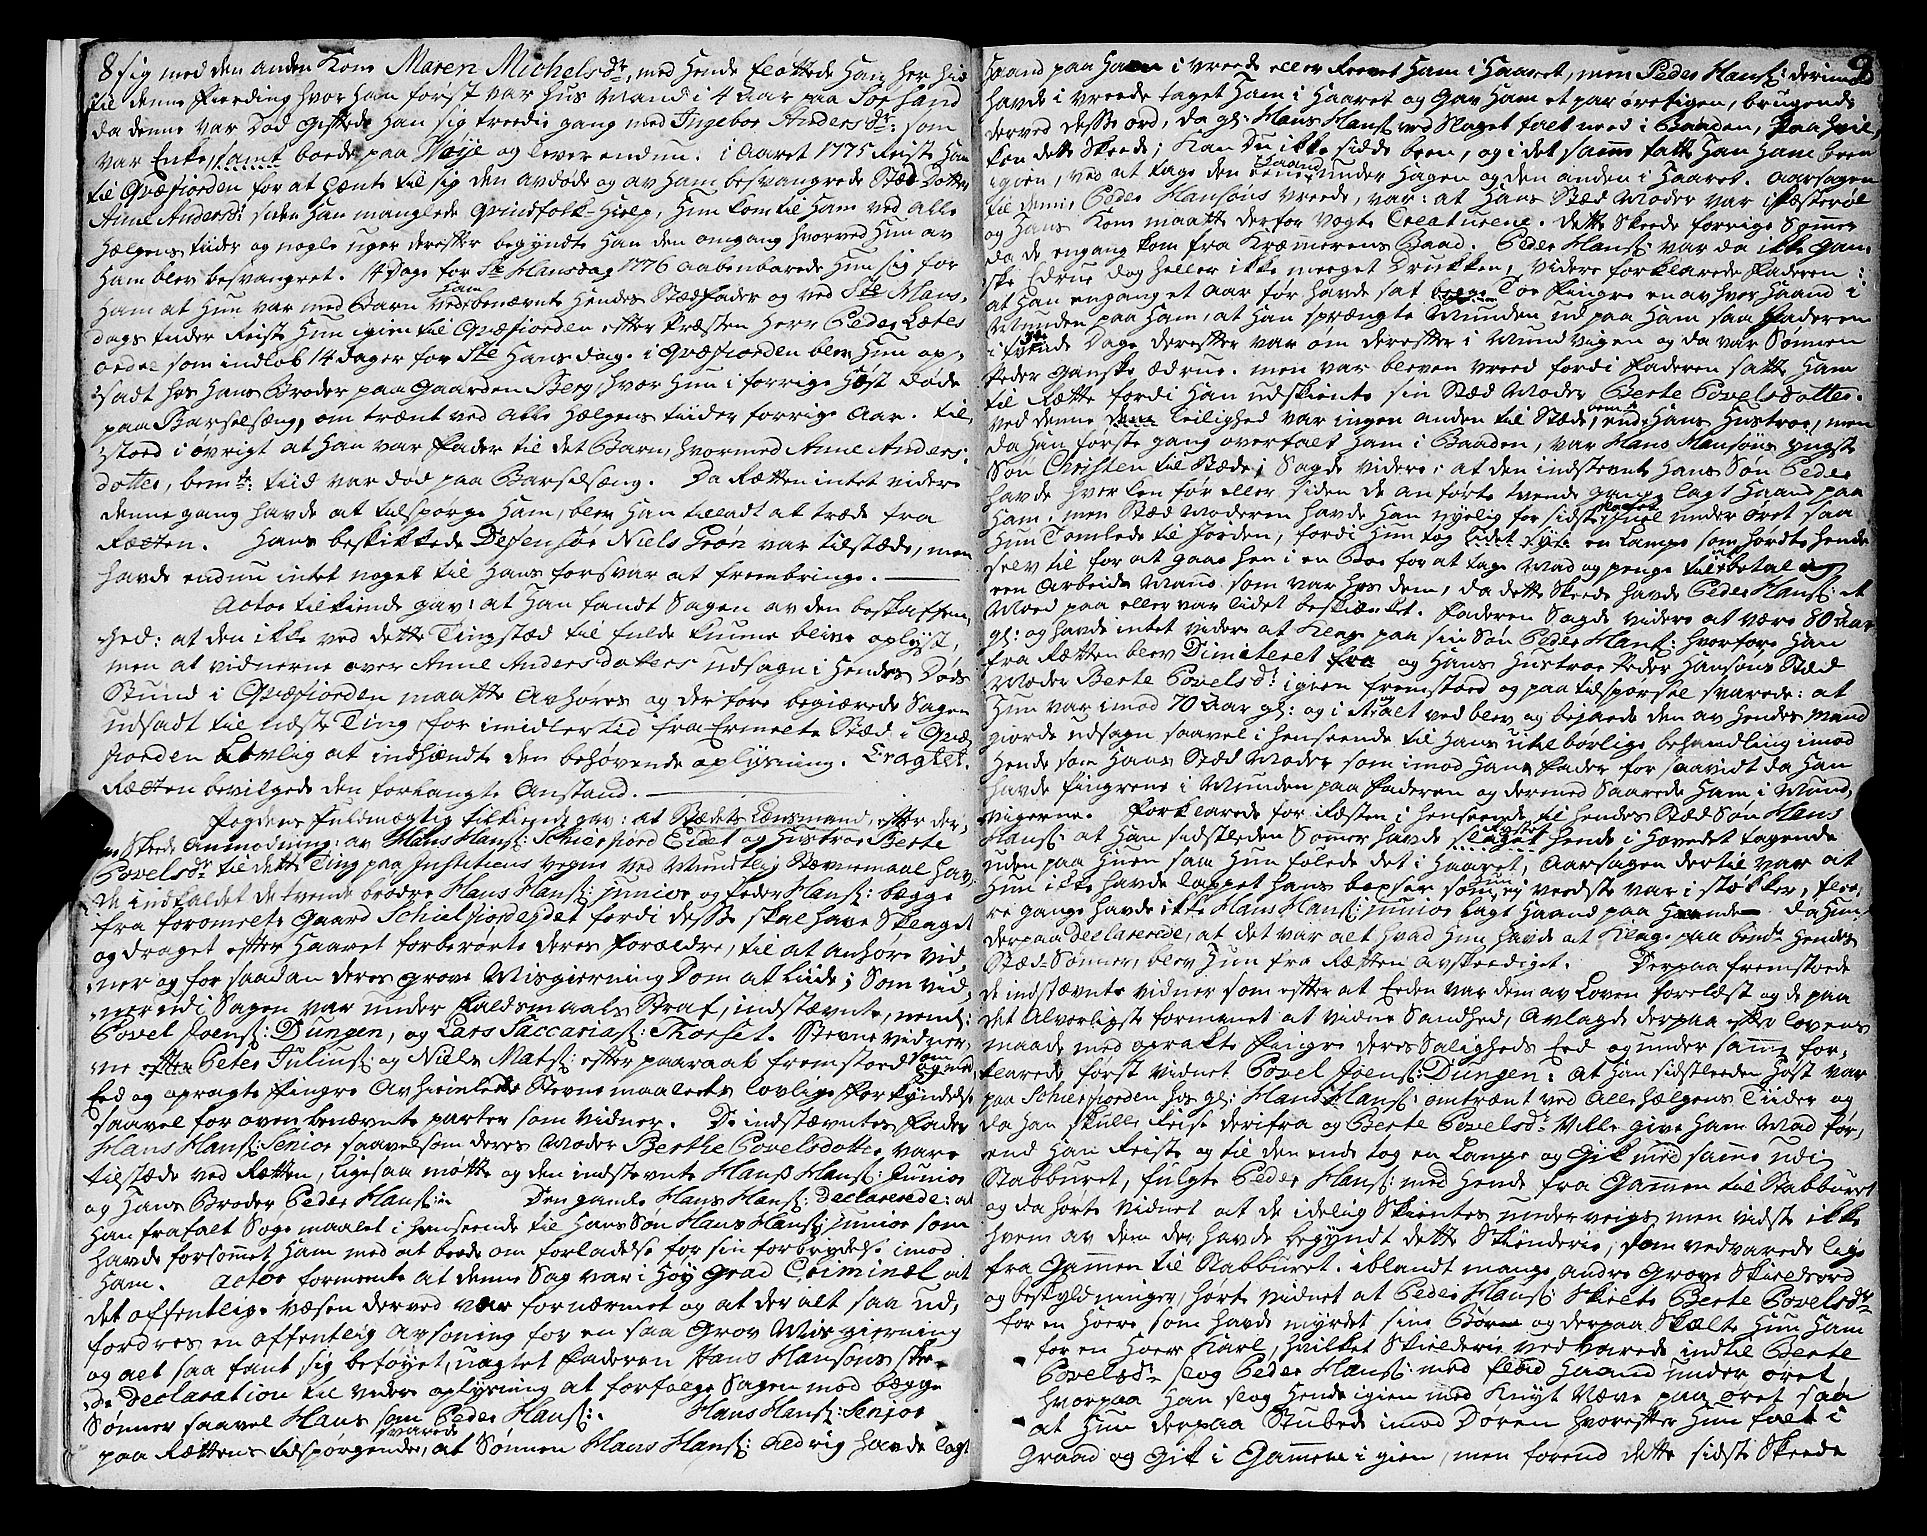 8 sig med den anden Kone Maren Michelsdr, med Hende flöttede Han her hid
til denne Fierding hvor Han först var Hus Mand i 4 aar paa Sörsand
da denne var Död Giftede Han sig tredie gang med Ingebor Andersdr: som
var Enke, samt boede paa Nöje og lever endnu. i Aaret 1775 Reiste Han
til Qvæfiorden for at Hente til sig den avdöde og av Ham besvangrede Stæd Dotter
Anne Andersd: siden Han manglede Qvindfolk-Hielp, Hun kom til Ham ved alle
Hælgens tiider og nogle uger derefter begyndte Han den omgang hvorved Hun av
Ham blev besvangret. 14 Dage for Ste Hansdag 1776 aabenbarede Hun sig for
Ham at Hun var med Barn ved Ham bemævnte Hendes Stædfader og ved Ste Hans,
dags tider Reiste Hun igien til Qvæfiorden efter Præsten Herr Peder Lætes
ordre som indlöb 14 dager for Ste Hans dag. i Qvæfiorden blev Hun op,
sadt hos Hans Broder paa Gaarden Berg, hvor Hun i forrige Höst Döde
paa Barselsæng, omtrænt ved alle Hælgens tiider forrige Aar. til,
stoed i övrigt at Han var Fader til det Barn, hvormed Anne Anders:
dotter, bem:te tiid var död paa Barselsæng. Da Rætten intet videre
denne gang havde at tilspörge Ham, blev Han tilladt at træde fra
Rætten. Hans beskikkede Defensor Niels Grön var tilstæde, men
havde endnu intet noget til Hans forsvar at frembringe.
Actor tilkiende gav: at Han fandt Sagen av den beskaffen,
hed: at den ikke ved dette Tingstæd til fulde kunne blive oplyst,
men at vidnerne over Anne Andersdatters udsagn i Hendes Döds
Stund i Qvæfiorden maatte avhöres og derfore begierede Sagen
udsadt til næste Ting, for imidlertid fra Ermelte Stæd i Qvæ
fiorden Lovlig at indhændte den behövende oplysning. Eragtet.
Rætten bevilgede den forlangte Anstand.
Fogdens Fuldmægtig tilkiende gav: at Stædets Lænsmand, efter der,
om skeede anmodning av Hans Hans: Schierfiord Eidet og Hustroe Berte
Povelsdr til dette Ting paa Justitiens vegne ved Mundtlig Stævnemaal hav,
de indkaldet de tvende brödre Hans Hans: junior og Peder Hans: begge
fra formelte gaard Schielfiordeidet fordi desse skal have Slaaget
og draget efter Haaret forberörte deres forældre, til at anhöre vid,
ner og for saadan deres grove Misgierning Dom at liide; Som vid,
ner udi Sagen var under Faldsmaals Straf, indstævnte, neml:
Povel Joens: Dungen, og Lars Saccarias: Thorset. Stevnevidner,
ne Peter Julius: og Niels Mats: efter paaraab fremstoed som og med
Eed og opragte Fingre Avhiemlede Stevnemaalets lovlige Forkyndelse
saavel for ovenbenævnte parter som vidner. De indstævntes Fader
Hans Hans: Senior saavelsom deres Moder Berthe Povelsdotter, vare
tilstæde ved Rætten, ligesaa mötte og den indstevnte Hans Hans: Junior
og Hans Broder Peder Hans: Den gamle Hans Hans: Declarerede: at
Han frafalt Sögemaalet i henseende til Hans Sön Hans Hans: junior som
havde forsonnet Ham med at beede om forladelse for sin forbrydelse imod
Ham. Actor formente at denne Sag var i Höy grad Criminel at
det offentlige væsen derved var fornærmet og at der alt saa ud,
fordres en offentlig avsoning for en saa Grov Misgierning
og alt saa fant sig beföyet, uagtet Faderen Hans Hansöns skee,
de Declaration til videre oplysning at forfölge Sagen mod begge
Sönner saavel Hans som Peder Hans:. Hans Hans: Senior
paa Rættens tilspörgende, svarede at Sönnen Hans Hans: aldrig havde lagt
9
Haand paa Ham i vreede eller Revet Ham i Haaret, men Peder Hans: derimod
havde i vreede taget Ham i Haaret og gav Ham et par örefigen, brugende
derved desse ord, da gl: Hans Hans: ved Slaget falt need i Baaden, paa hvil,
ken dette skeede; Kan Du ikke sidde been, og i det samme satte Han Ham been
igien, ved at tage den Haand under Hagen og den anden i Haaret. Aarsagen
til denne Peder Hansöns vreede, var: at Hans Stæd Moder var i fæsteröl
og Hans Kone maatte derfor vogte Creaturene. dette skeede forrige Sommer
da de engang kom fra Kræmmerens Baad. Peder Hans: var da ikke gan,
ske Edrue dog heller ikke meeget Drukken, videre forklarede Faderen:
at Han engang et Aar för havde sat toe Fingre en av hver Haand i
Munden paa Ham, at Han sprængte Munden ud paa Ham saa Faderen
i Dage derefter var öm derefter i Mundvigen og da var Sönnen
Peder ganske ædrue. men var bleven vreed fordi Faderen satte Ham
til Rætte fordi Han udskiente sin Stæd Moder Berte Povelsdotter.
ved denne Leilighed var ingen anden til Stæde, end Hans Hustroe, men
da Han förste gang overfalt Ham i Baaden, var Hans Hansöns yngste
Sön Christen til Stæde. Sagde videre: at den indstevnte Hans Sön Peder
havde hverken för eller siden de anförte tvende gange lagt Haand paa
Ham, men Stæd Moderen havde Han nyelig for sidste Juel under öret saa
Hun Tomlede til Jorden, fordi Hun tog en Lampe som hördte Hende
selv til for at gaae hen i en Boe for at tage Mad og penge til betaling
een Arbeids Mand som var hos dem, da dette skeede havde Peder Hans: et
Moed paa eller var lidet beskiænket. Faderen Sagde videre at være 80 Aar
gl: og havde intet videre at Klage paa sin Sön Peder Hans: hvorfore Han
fra Rætten blev Dimiteret og Hans Hustroe Peder Hansöns Stæd
Moder Berte Povelsdr igien fremstoed og paa tilspörsel svarede: at
Hun var imod 70 Aar gl: og i Alt ved blev og bejaede den av Hendes Mand
giorde udsagn saavel i henseende til Hans utilbörlige behandling imod
Hende som Hans Stæd Moder som imod Hans Fader for saavidt da Han
havde Fingrene i Munden paa Faderen og dermed saarede Ham i Mund,
vigerne. Forklarede for Resten i henseende til Hendes Stæd Sön Hans
Hans: at Han sidstleeden Sommer havde Hende i Hovedet tagende
uden paa Huen saa Hun fölede det i Haaret, Aarsagen dertil var at
Hun ikke havde lappet Hans bexser som Hun ey vedste var i stökker, flee,
re gange havde ikke Hans Hans: junior lagt Haand paa Hende. da Hun
derpaa Declarerede, at det var alt hvad Hun havde at Klage paa bemte Hendes
Stæd-Sönner, blev Hun fra Rætten avskeediget. Derpaa fremstoede
de indstævnte vidner som efter at Eeden var dem av Loven forelæst og de paa
det Alvorligste formanet at vidne Sandhed, Avlagde derpaa efter lovens
maade med oprakte Fingre deres Saligheds Eed og under samme for,
klarede först vidnet Povel Joens: Dungen: at Han sidstleeden Höst var
paa Schierfiorden hos gl: Hans Hans: omtrænt ved Alle Hælgens Tiider og
da Han skulle Reise derifra og Berte Povelsdr ville give Ham Mad för,
end Han Reiste og til den ende tog en Lampe og Gik med samme udi
Stabburet, fulgte Peder Hans: med Hende fra Gammen til Stabburet
og da hörte vidnet at de idelig Skientes underveigs men vidste ikke
hvem av dem der havde begyndt dette Skienderie, som vedvarede lige
fra Gammen til Stabburet. iblandt mange andre Grove Skieldsord
og beskyldninger, hörte vidnet at Peder Hans: Skielte Berte Povelsdr
for en Hoere som havde myrdet sine Börn og derpaa Skælte Hun Ham
for en Hoer Karl, hvilket Skielderie vedvarede indtil Berte
Povelsdr slog Peder Hans: med flad Haand under öret
hvorpaa Han slog Hende igien med Knyt Næve paa öret saa
at Hun derpaa Stubede imod Dören hvorefter Hun falt i
Graad og Gik i Gammen igien, men forend dette sidste skeede